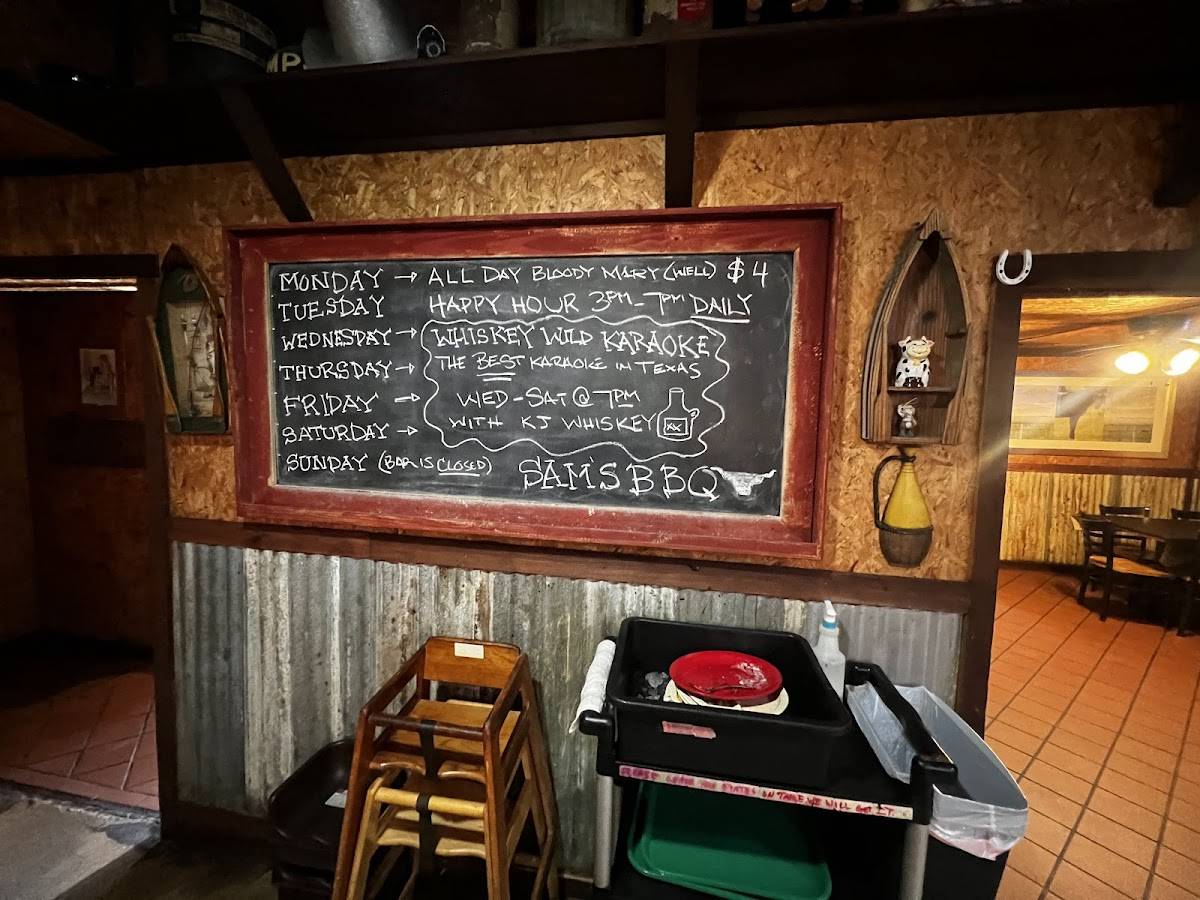 MP
MONDAY → ALL DAY BLOODY MARY (WELL) $4
TUESDAY HAPPY HOUR 3PM-7PM DAILY
WEDNESDAY → WHISKEY WILD KARAOKE
THURSDAY → THE BEST KARAOKE IN TEXAS
FRIDAY → WED-SAT @ 7PM
SATURDAY → WITH KJ WHISKEY XX
SUNDAY (BAR IS CLOSED) SAM'S BBQ
PLEASE LEAVE PLATES ON TABLE WE WILL GET IT.